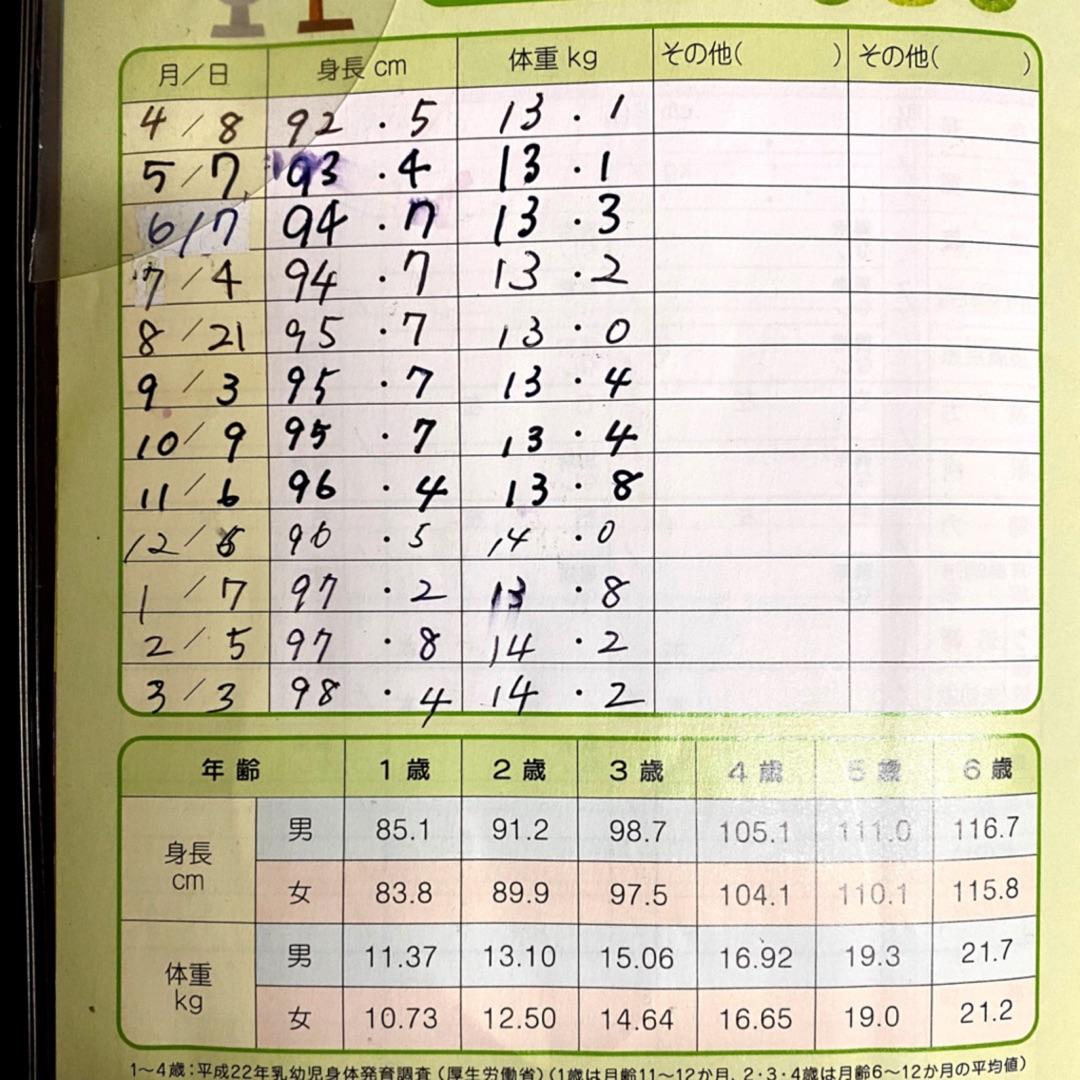 月/日 身長 cm 体重 kg その他( ) その他( )
4/8 92.5 13.1
5/7 93.4 13.1
6/7 94.7 13.3
7/4 94.7 13.2
8/21 95.7 13.0
9/3 95.7 13.4
10/9 95.7 13.4
11/6 96.4 13.8
12/ 96.5 14.0
1/7 97.2 13.8
2/5 97.8 14.2
3/3 98.4 14.2
年齢 1歳 2歳 3歳 4歳 5歳 6歳
身長 cm 男 85.1 91.2 98.7 105.1 111.0 116.7
女 83.8 89.9 97.5 104.1 110.1 115.8
体重 kg 男 11.37 13.10 15.06 16.92 19.3 21.7
女 10.73 12.50 14.64 16.65 19.0 21.2
1〜4歳:平成22年乳幼児身体発育調査(厚生労働省)(1歳は月齢11〜12か月、2・3・4歳は月齢6〜12か月の平均値)